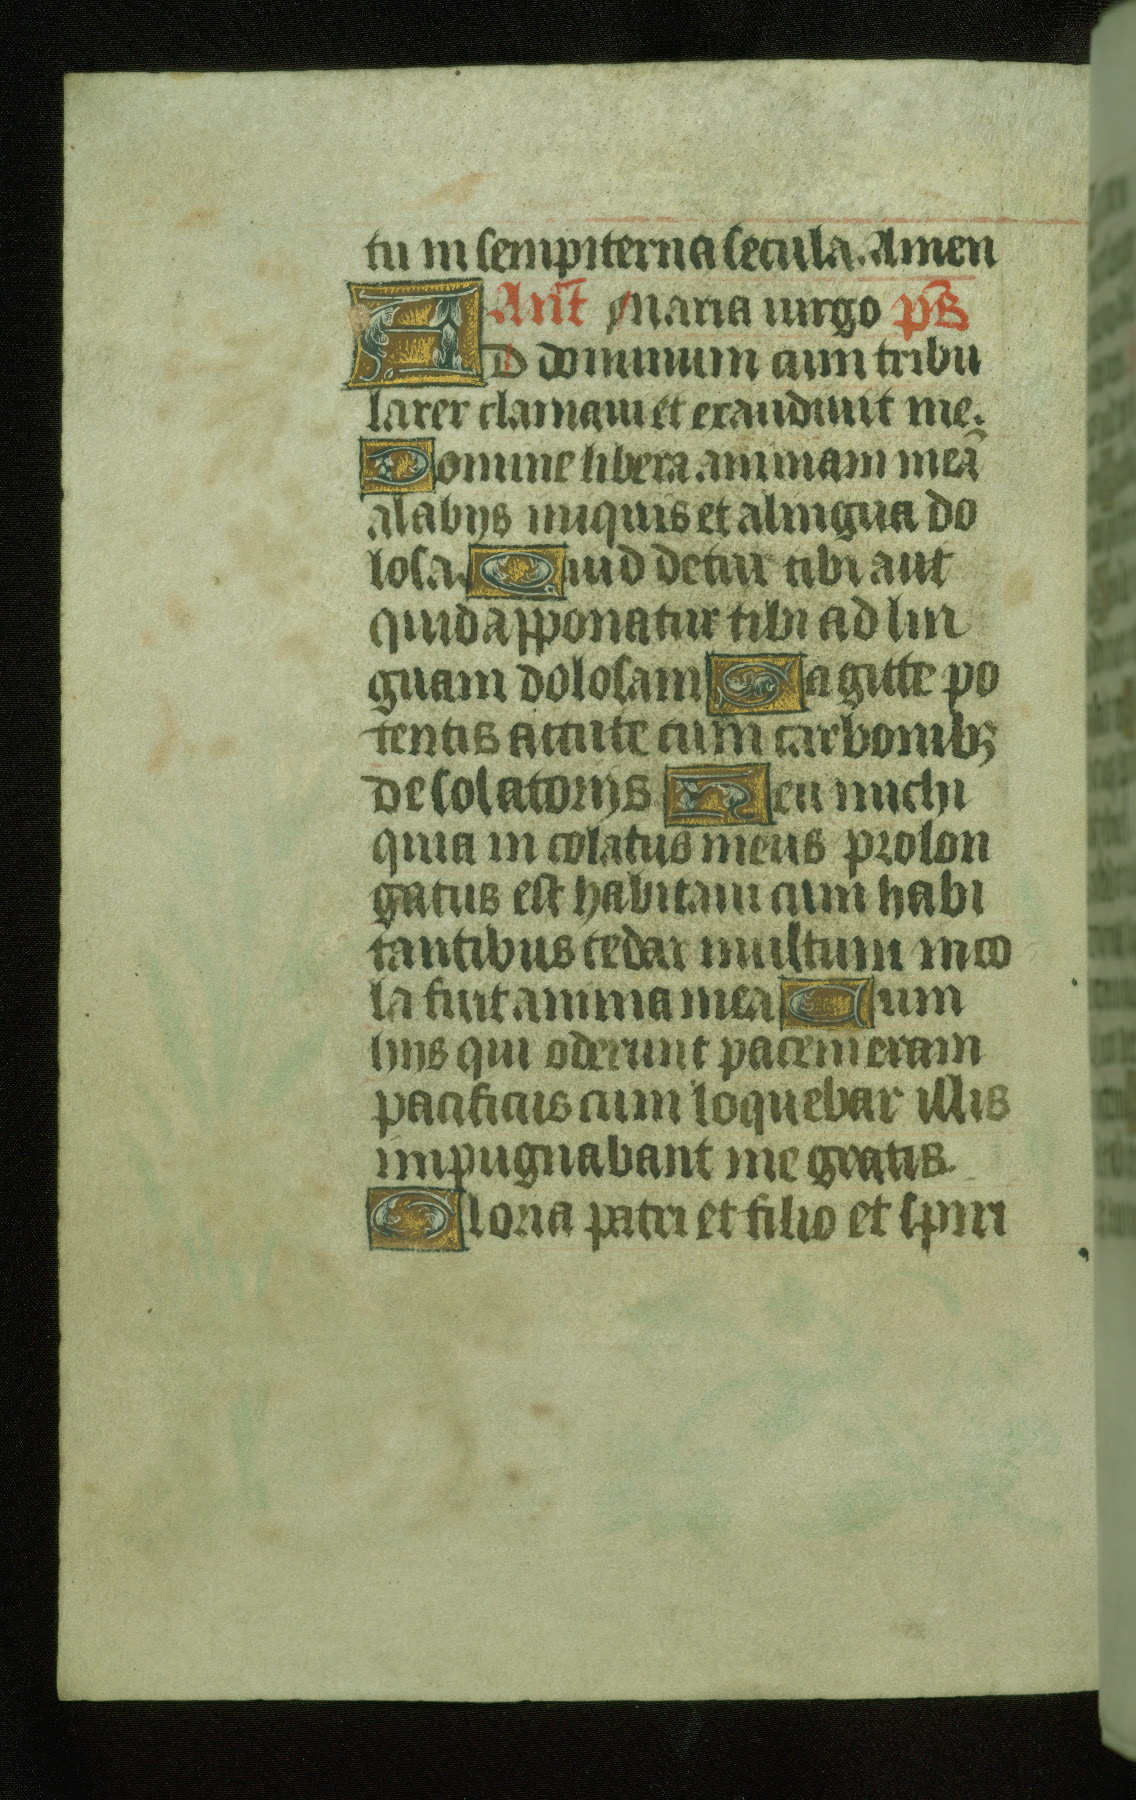 tu in sempiterna secula. Amen
Ant Maria uirgo ps
AD dominum cum tribu
larer clamaui et exaudiuit me.
Domine libera animam meā
a labijs iniquis et a lingua do
losa. Quid detur tibi aut
quid apponatur tibi ad lin
guam dolosam Sagitte po
tentis accute cum carbonibꝫ
desolatorijs Heu michi
quia in colatus meus prolon
gatus est habitaui cum habi
tantibus cedar multum inco
la fuit anima mea Cum
hijs qui oderunt pacem eram
pacificus cum loquebar illis
impugnabant me gratis.
Gloria patri et filio et spiri